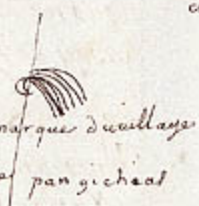 marque du village
pangicheas